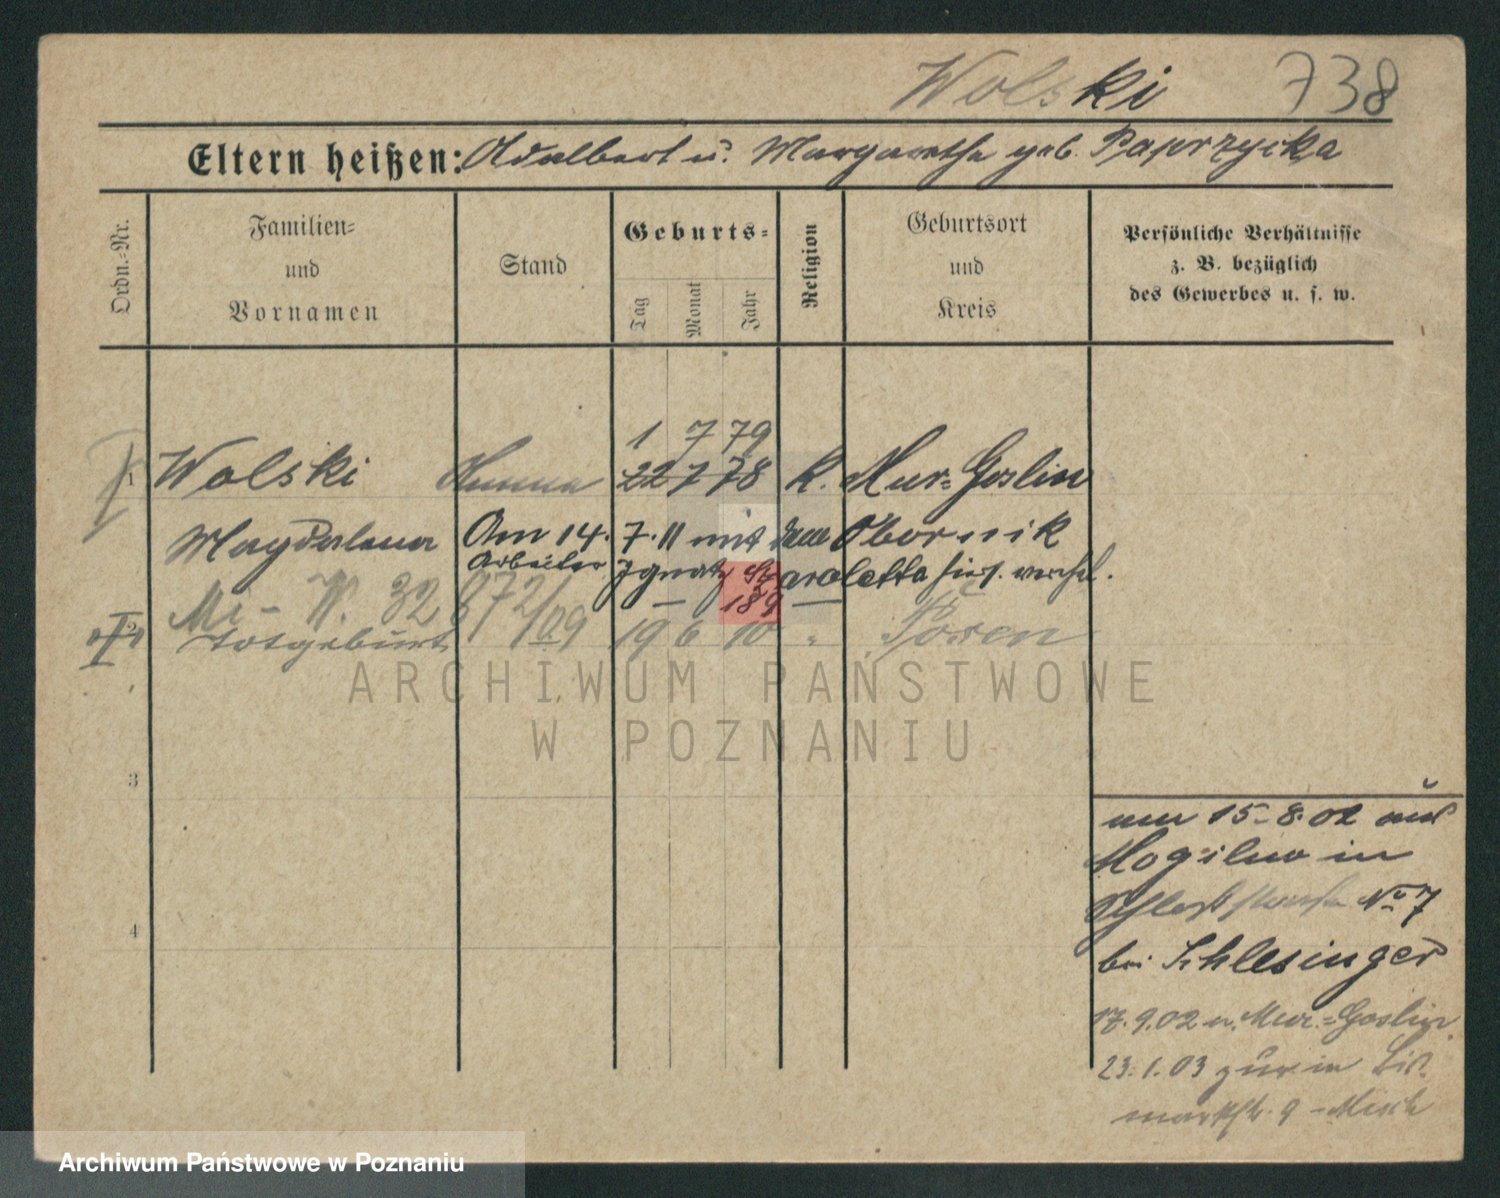 Wolski 738
Eltern heißen: Adalbert u. Margarethe geb. Paprzycka
Ordn.-Nr.
Familien-
und
Vornamen
Stand
Geburts-
Tag
Monat
Jahr
Religion
Geburtsort
und
Kreis
Persönliche Verhältnisse
z. B. bezüglich
des Gewerbes u. s. w.
1 7 79
1 Wolski 22 7 78 K. Mur-Goslin
Magdalena Am 14. 7. 11 mit dem Obornik
Arbeiter Ignatz Skaroletta hies. verehel.
189
2 Totgeburt 19 6 10 " Posen
3
4
am 15-8.02 aus
Mogilno in
No 7
bei Schlesinger
17.9.02 n. Mur.-Goslin
23.1.03 zur in Bis-
markstr. 9 -
ARCHIWUM PAŃSTWOWE
W POZNANIU
Archiwum Państwowe w Poznaniu